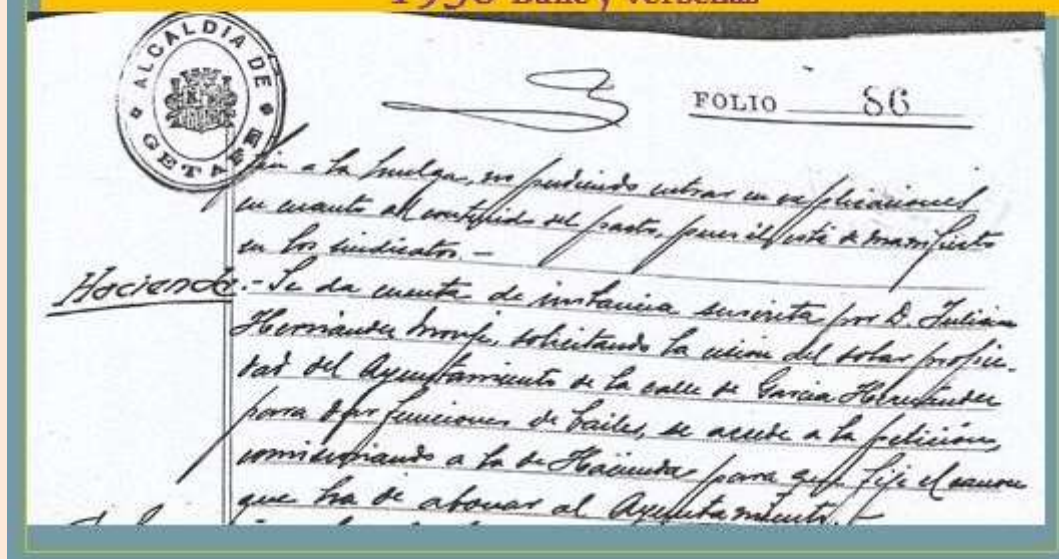 1936 Baile y verbenas
ALCALDIA DE GETAFE
FOLIO 86
fin a la huelga, no pudiendo entrar en explicaciones
en cuanto al contenido del pacto, pues él está de manifiesto
en los sindicatos.-
Hacienda.- Se da cuenta de instancia suscrita por D. Julian
Hernández solicitando la cesión del solar propie-
dad del Ayuntamiento de la calle de Garcia Hernández
para dar funciones de bailes, se accede a la petición,
comisionando a la de Hacienda para que fije el canon
que ha de abonar al Ayuntamiento.-